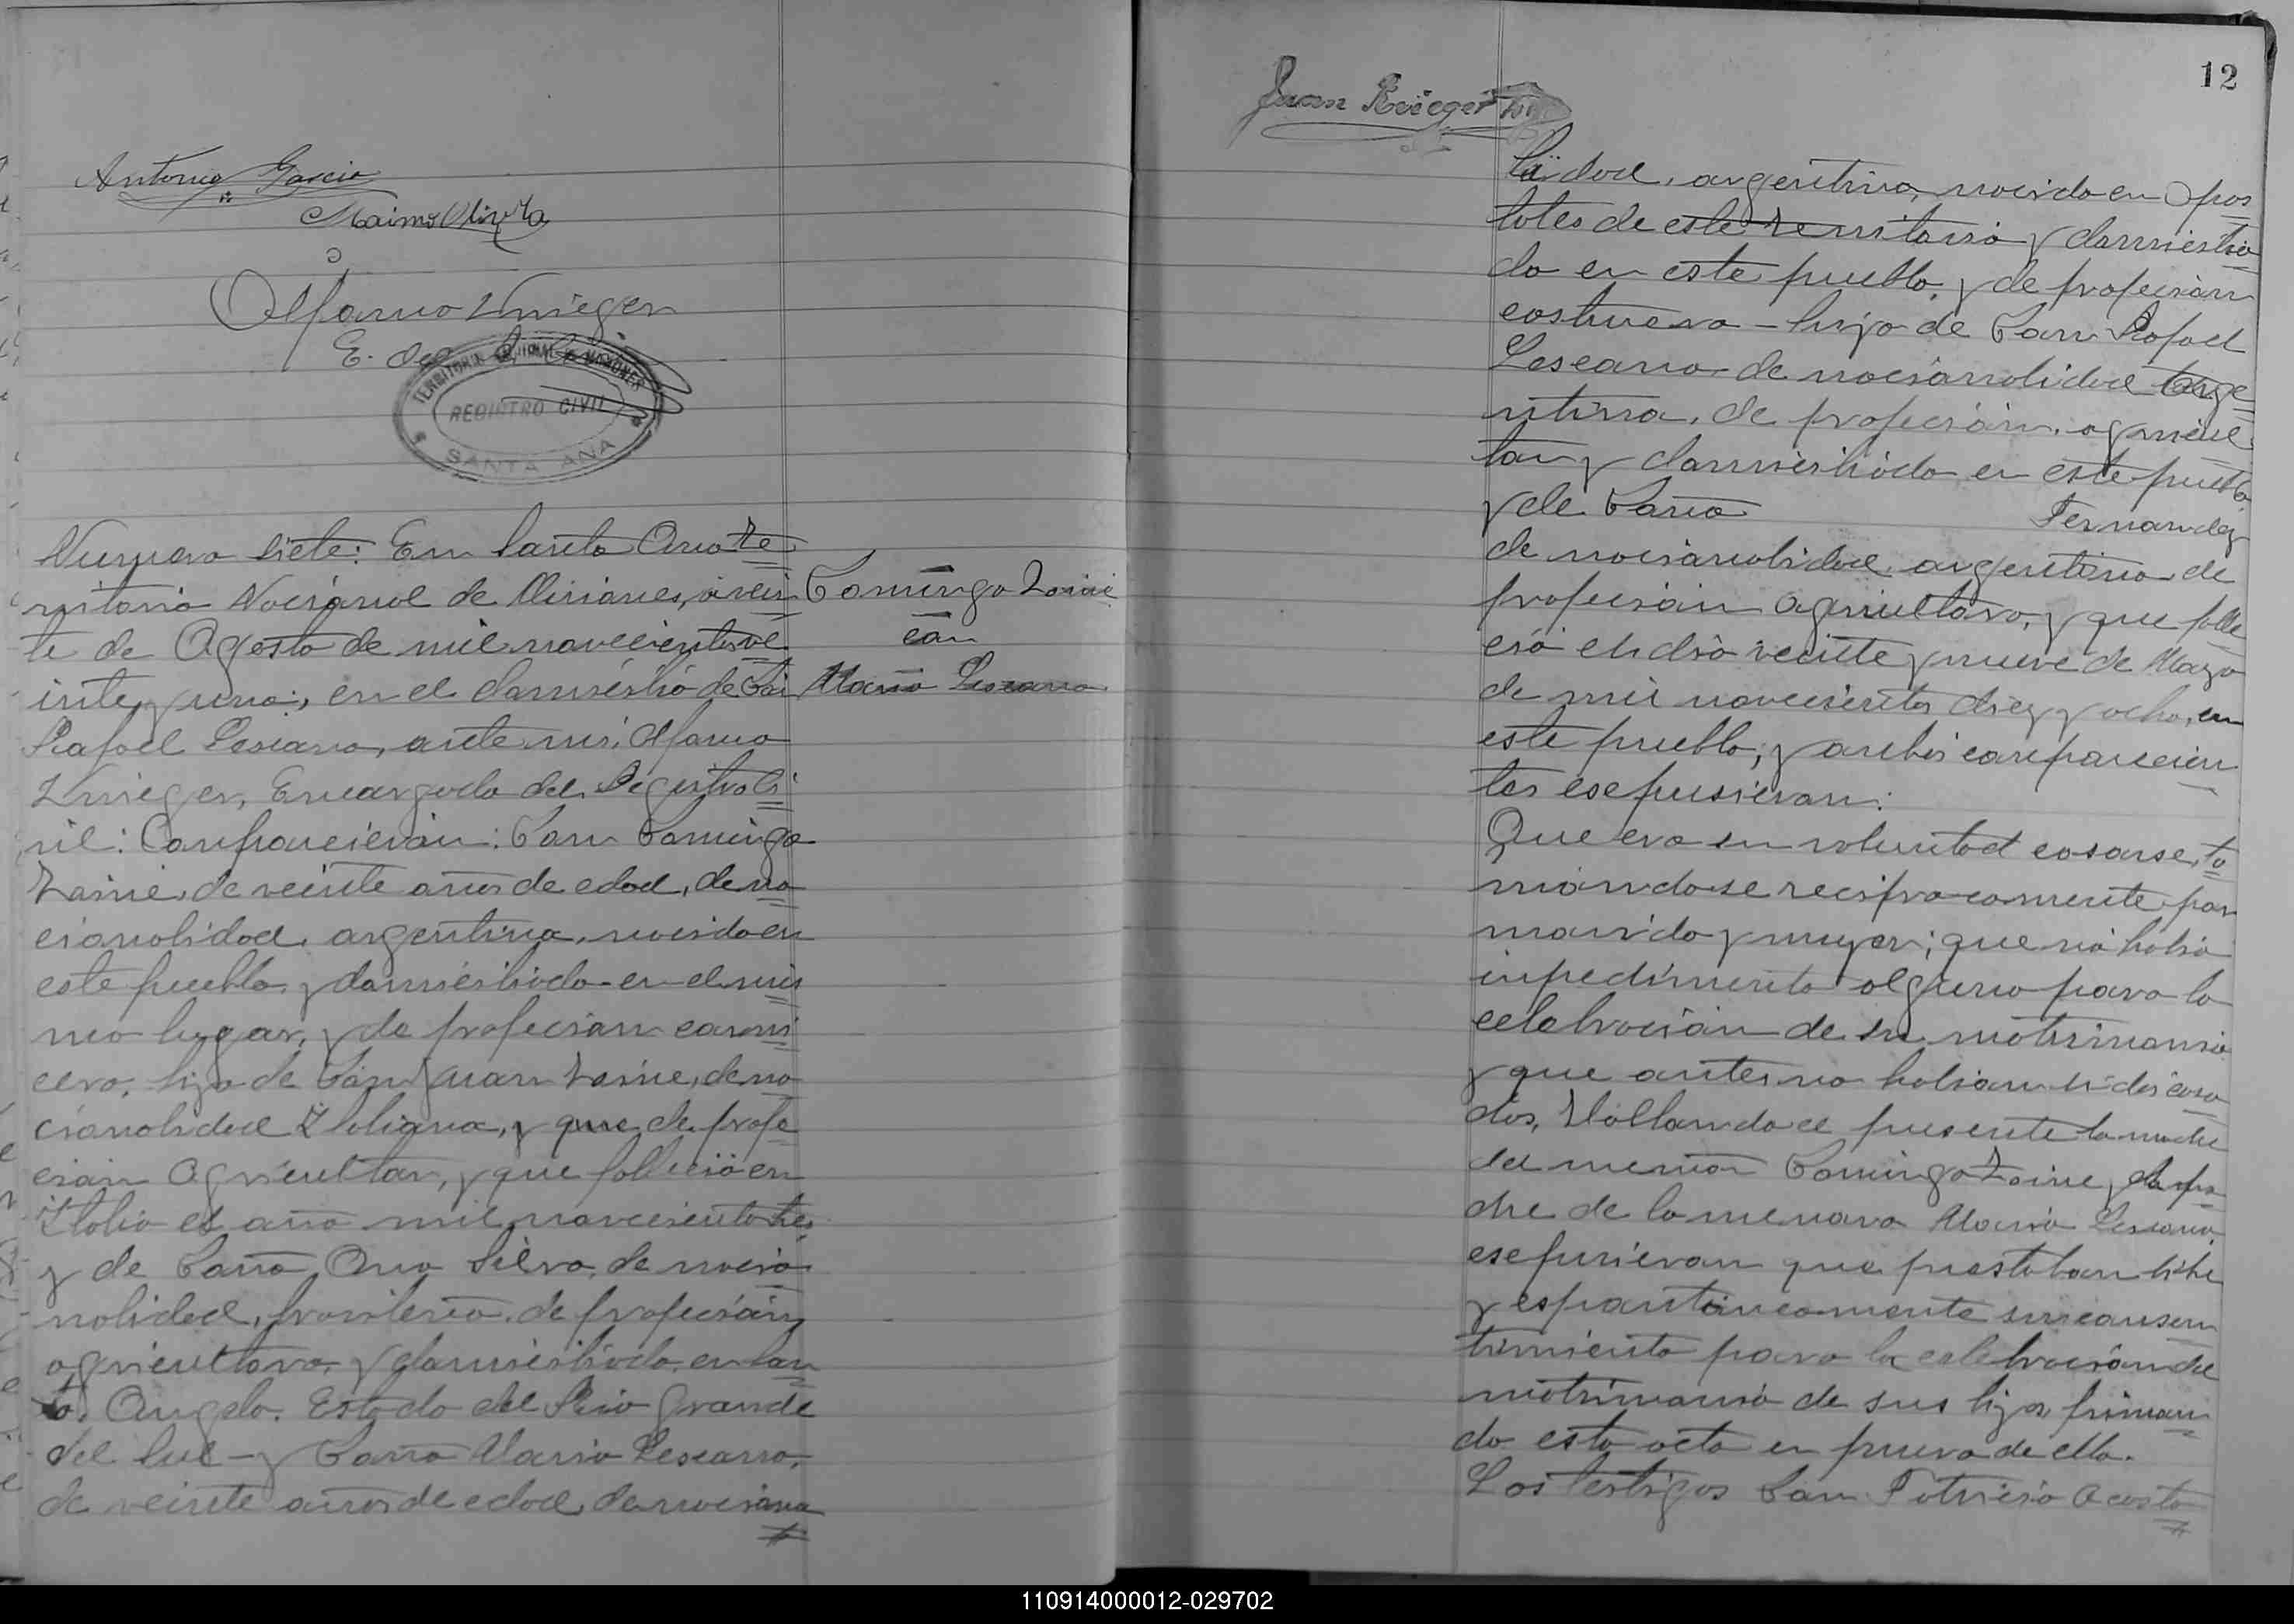 Antonio Garcia
Maimo Olivera
Alfonso Krieger
E. del R. Civil
TERRITORIO NACIONAL DE MISIONES
REGISTRO CIVIL
SANTA ANA
Numero siete: En Santa Ana Te
rritorio Nacional de Misiones, á vein
te de Agosto de mil novecientos ve
inte y uno, en el domicilio de Don
Rafael Lescano, ante mí, Alfonso
Krieger, Encargado del Registro Ci
vil: Comparecieron: Don Domingo
Zarine, de veinte años de edad, de na
cionalidad, argentina, nacido en
este pueblo, y domiciliado en el mis
mo lugar, y de profecion carni
cero, hijo de Don Juan Zarine, de na
cionalidad Italiana, y que de profe
cion Agricultor, y que falleció en
Italia el año mil novecientos tres,
y de Doña Ana Silva, de nacio
nalidad, brasilera, de profecion
agricultora, y domiciliada, en San
to. Angelo. Estado del Rio Grande
del Sul - y Doña Maria Lescano,
de veinte años de edad, de naciona
Domingo Zarine
con
Maria Lescano
12
Juan Krieger hijo
lidad, argentina, nacida en Apos
toles de este Territorio y domicilia
da en este pueblo, y de profecion
costurera - hija de Don Rafael
Lescano de nacionalidad Arge
ntina, de profecion, agricul
tor y domiciliado en este pueblo
y de Doña Fernandez
de nacionalidad argentina de
profecion Agricultora, y que falle
ció el dia veinte y nueve de Mayo
de mil novecientos diez y ocho, en
este pueblo; y ambos comparecien
tes espusieron:
Que era su voluntad casarse, to
mandose reciprocamente por
marido y mujer; que nó habia
inpedimento alguno para la
celebracion de su matrimonio
y que antes no habian sidos casa
dos, Hallandose presente la madre
del menor Domingo Zarine y el pa
dre de la menora Maria Lescano,
espusieron que prestaban libre
y espontaneamente su consen
timiento para la celebracion del
matrimonio de sus hijos, firman
do esta acta en prueva de ello.
Los testigos Don Patricio Acosta
110914000012-029702